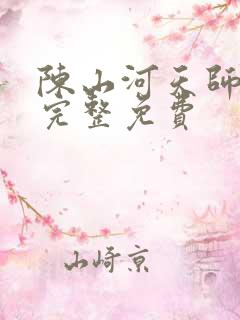 陳山河天師
完整免費
山崎京